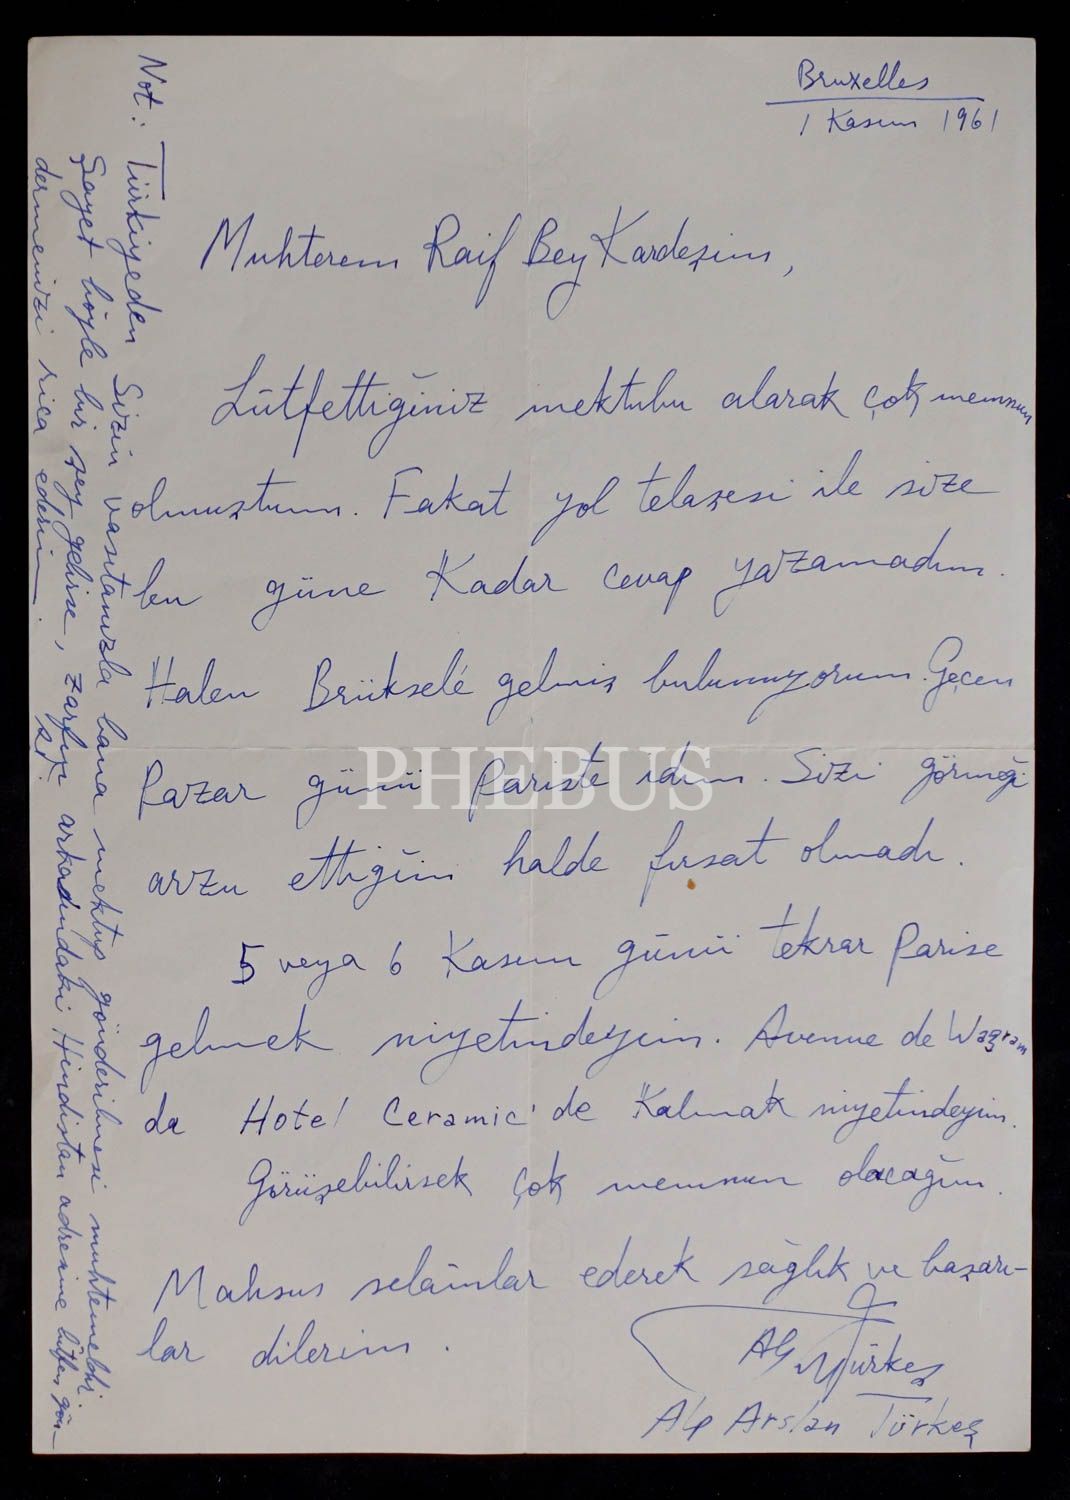 Bruxelles
1 Kasım 1961
Muhterem Raif Bey Kardeşim,
Lûtfettiğiniz mektubu alarak çok memnun
olmuştum. Fakat yol telaşesi ile size
bu güne Kadar cevap yazamadım.
Halen Brüksele gelmiş bulunuyorum. Geçen
Pazar günü Pariste idim. Sizi görmeği
arzu ettiğim halde fırsat olmadı.
5 veya 6 Kasım günü tekrar Parise
gelmek niyetindeyim. Avenue de Wagram
da Hotel Ceramic'de Kalmak niyetindeyim.
Görüşebilirsek çok memnun olacağım.
Mahsus selâmlar ederek sağlık ve başarı-
lar dilerim.
Alp Arslan Türkeş
Not: Türkiyeden Sizin vasıtanızla bana mektup gönderilmesi muhtemeldir.
Şayet böyle bir şey gelirse, zarfın arkasındaki Hindistan adresime lütfen gön-
dermenizi rica ederim.
PHEBUS